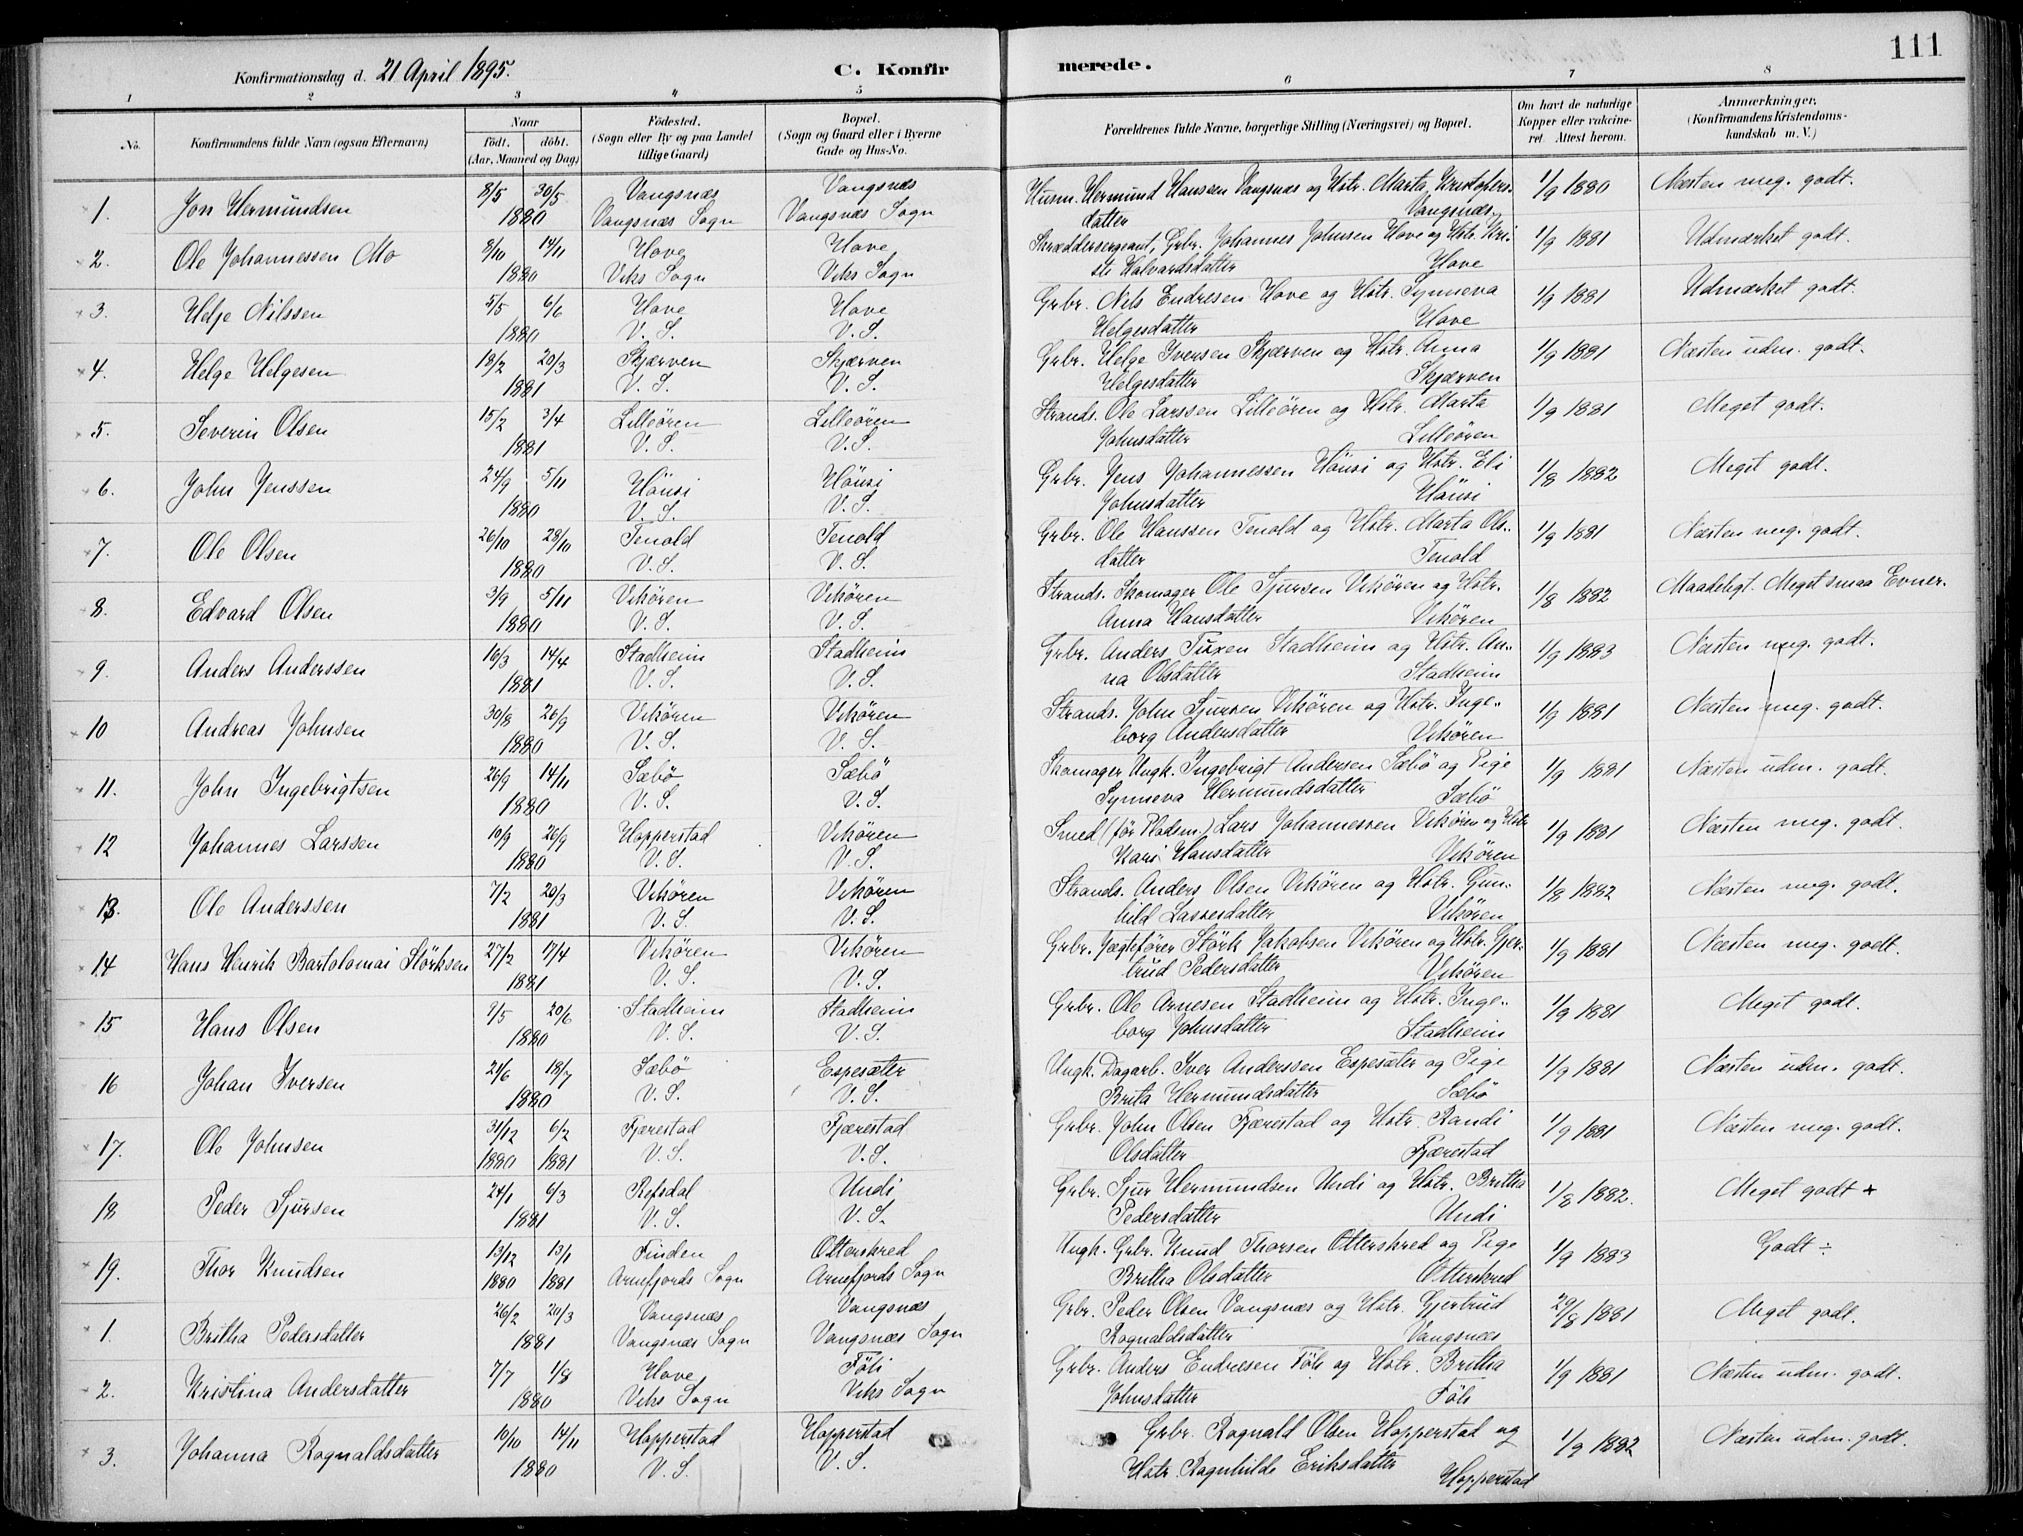 111
Konfirmationsdag d. 21 April 1895.
C. Konfirmerede.
1 2 3 4 5 6 7 8
No.
Konfirmandens fulde Navn (ogsaa Efternavn)
Naar
födt. döbt.
(Aar, Maaned og Dag)
Födested.
(Sogn eller By og paa Landet
tillige Gaard)
Bopæl.
(Sogn og Gaard eller i Byerne
Gade og Hus-No.
Forældrenes fulde Navne, borgerlige Stilling (Næringsvei) og Bopæl.
Om havt de naturlige
Kopper eller vakcine-
ret. Attest herom.
Anmærkninger.
(Konfirmandens Kristendoms-
kundskab m. V.)
1. Jon Hermundsen 8/5 30/5 Vangsnæs Vangsnæs Husm. Hermund Hansen Vangsnæs og Hstr. Marta Kristofers- 1/9 1880 Næsten meg. godt.
1880 Vangsnæs Sogn Vangsnæs Sogn datter Vangsnæs
2. Ole Johannessen Mo 8/10 14/11 Hove Hove Skræddersergeant, Grbr. Johannes Johnsen Hove og Hstr. Kri- 1/9 1881 Udmærket godt.
1880 Viks Sogn Viks Sogn ste Halvardsdatter Hove
3. Helje Nilssen 5/5 6/6 Hove Hove Grbr. Nils Endresen Hove og Hstr. Synneva 1/9 1881 Udmærket godt.
1880 V. S. V. S. Helgesdatter Hove
4. Helge Helgesen 18/2 20/3 Skjærven Skjærven Grbr. Helge Iversen Skjærven og Hstr. Anna 1/9 1881 Næsten udm. godt.
1881 V. S. V. S. Helgesdatter Skjærven
5. Severin Olsen 15/2 3/4 Lilleören Lilleören Strands. Ole Larssen Lilleören og Hstr. Marta 1/9 1881 Meget godt.
1881 V. S. V. S. Johnsdatter Lilleören
6. John Jenssen 24/9 5/11 Hönsi Hönsi Grbr. Jens Johannessen Hönsi og Hstr. Eli 1/8 1882 Meget godt.
1880 V. S. V. S. Johnsdatter Hönsi
7. Ole Olsen 26/10 28/10 Tenold Tenold Grbr. Ole Hanssen Tenold og Hstr. Marta Ols- 1/9 1881 Næsten meg. godt.
1880 V. S. V. S. datter Tenold
8. Edvard Olsen 3/9 5/11 Viköre​n Vikören Strands. Skomager Ole Sjursen Vikören og Hstr. 1/8 1882 Maadeligt. Meget smaa Evner.
1880 V. S. V. S. Anna Hansdatter Vikören
9. Anders Anderssen 16/3 14/4 Stadheim Stadheim Grbr. Anders Tuxen Stadheim og Hstr. An- 1/9 1883 Næsten meg. godt.
1881 V. S. V. S. na Olsdatter Stadheim
10 Andreas Johnsen 30/8 26/9 Vikören Vikören Strands. John Sjursen Vikören og Hstr. Inge- 1/9 1881 Næsten meg. godt.
1880 V. S. V. S. borg Andersdatter Vikören
11. John Ingebrigtsen 26/9 14/11 Sæbö Sæbö Skomager Ungk. Ingebrigt Andersen Sæbö og Pige 1/9 1881 Næsten udm. godt.
1880 V. S. V. S. Synneva Hermundsdatter Sæbö
12 Johannes Larssen 10/9 26/9 Hopperstad Vikören Smed (för Pladsm.) Lars Johannessen Vikören og Hstr 1/9 1881 Næsten meg. godt.
1880 V. S. V. S. Kari Hansdatter Vikören
13. Ole Anderssen 7/2 20/3 Vikören Vikören Strands. Anders Olsen Vikören og Hstr. Gun- 1/8 1882 Næsten meg. godt.
1881 V. S. V. S. hild Lassesdatter Vikören
14 Hans Henrik Bartolomai Störksen 27/2 17/4 Vikören Vikören Grbr. Jægtefører Störk Jakobsen Vikören og Hstr. Gjer- 1/9 1881 Næsten meg. godt.
1881 V. S. V. S. trud Pedersdatter Vikören
15 Hans Olsen 7/5 20/6 Stadheim Stadheim Grbr. Ole Arnesen Stadheim og Hstr. Inge- 1/9 1881 Meget godt.
1880 V. S. V. S. borg Johnsdatter Stadheim
16 Johan Iversen 21/6 18/7 Sæbö Espesæter Ungk. Dagarb. Iver Anderssen Espesæter og Pige 1/9 1881 Næsten udm. godt.
1880 V. S. V. S. Brita Hermundsdatter Sæbö
17. Ole Johnsen 31/12 6/2 Fjærestad Fjærestad Grbr. John Olsen Fjærestad og Hstr. Randi 1/9 1881 Næsten meg. godt.
1880 1881 V. S. V. S. Olsdatter Fjærestad
18 Peder Sjursen 24/1 6/3 Refsdal Undi Grbr. Sjur Hermundsen Undi og Hstr. Britha 1/8 1882. Meget godt +
1881 V. S. V. S. Pedersdatter Undi
19. Thor Knudsen 13/12 13/1 Finden Otterskred Ungk. Grbr. Knud Thorsen Otterskred og Pige 1/9 1883 Godt ÷
1880 1881 Arnefjords Sogn Arnefjords Sogn Britha Olsdatter Otterskred
1. Britha Pedersdatter 26/2 20/3 Vangsnæs Vangsnæs Grbr. Peder Olsen Vangsnæs og Hstr. Gjertrud 29/8 1881 Meget godt.
1881 Vangsnæs Sogn Vangsnæs Sogn Rognaldsdatter Vangsnæs
2. Kristina Andersdatter 7/7 1/8 Hove Föli Grbr. Anders Endresen Föli og Hstr. Britha 1/9 1881 Næsten udm. godt.
1880 Viks Sogn Viks Sogn Johnsdatter Föli
3. Johanna Rognaldsdatter 10/10 14/11 Hopperstad Hopperstad Grbr. Rognald Olsen Hopperstad og 1/9 1882 Næsten udm. godt.
1880 V. S. V. S. Hstr. Ragnhilde Eriksdatter Hopperstad